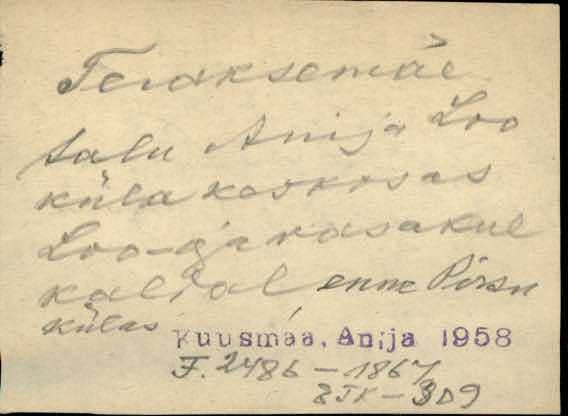 Teraksemäe
talu Anija Loo
küla keskosas
Loo-oja vasakul
kaldal enne Pirsu
külas
Kuusmaa, Anija 1958
F. 2486 - 1867